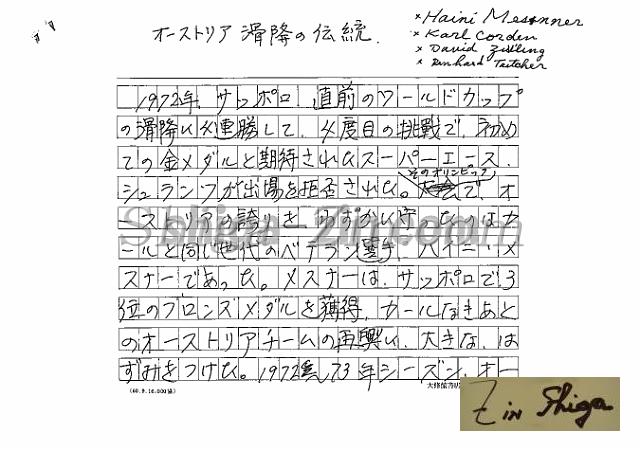 オーストリア滑降の伝統.
× Haini Messner
× Karl Corden
× David Zwilling
× Reinhard Tritcher
1972年、サッポロ直前のワールドカップ
の滑降に4連勝して、4度目の挑戦で、初め
ての金メダルと期待されたスーパーエース、
シュランツが出場を拒否された。そのオリンピックで、オ
ーストリアの誇りをわずかに守ったのはカ
ールと同い世代のベテラン選手、ハイニー・メ
スナーであった。メスナーは、サッポロで3
位のブロンズメダルを獲得、カールなきあと
のオーストリアチームの再興に、大きな、は
ずみをつけた。1972〜73年シーズン、オー
(60.9.10,000協)
Shiga-Zin.com
Z in Shiga